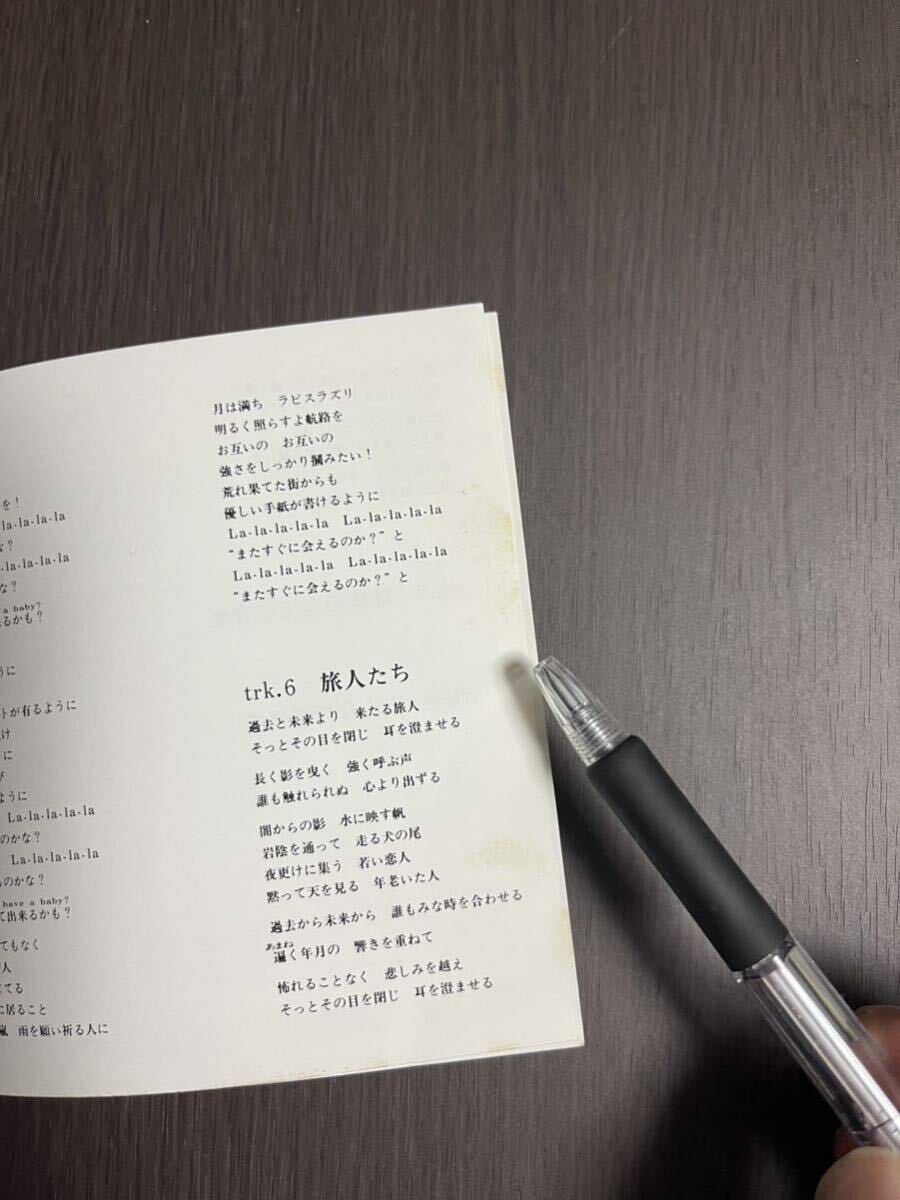 を！
la-la-la-la
な？
la-la-la-la
な？
a baby?
るかも？
うに
トが有るように
け
に
び
ように
La-la-la-la-la
のかな？
La-la-la-la-la
るのかな？
have a baby?
て出来るかも？
てもなく
人
てる
に居ること
嵐　雨を願い祈る人に
月は満ち　ラピスラズリ
明るく照らすよ航路を
お互いの　お互いの
強さをしっかり掴みたい！
荒れ果てた街からも
優しい手紙が書けるように
La-la-la-la-la　La-la-la-la-la
“またすぐに会えるのか？”と
La-la-la-la-la　La-la-la-la-la
“またすぐに会えるのか？”と
trk.6　旅人たち
過去と未来より　来たる旅人
そっとその目を閉じ　耳を澄ませる
長く影を曳く　強く呼ぶ声
誰も触れられぬ　心より出ずる
闇からの影　水に映す帆
岩陰を通って　走る犬の尾
夜更けに集う　若い恋人
黙って天を見る　年老いた人
過去から未来から　誰もみな時を合わせる
あまね
遍く年月の　響きを重ねて
怖れることなく　悲しみを越え
そっとその目を閉じ　耳を澄ませる